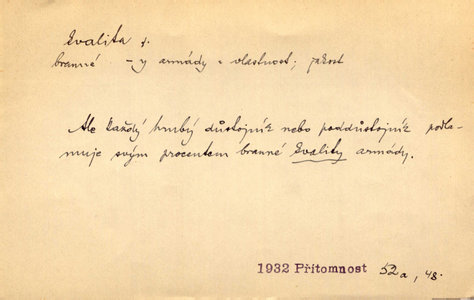 kvalita f.
branné -y armády : vlastnost; jakost
Ale každý hrubý důstojník nebo poddůstojník podla-
muje svým procentem branné kvality armády.
1932 Přítomnost 52a, 48.